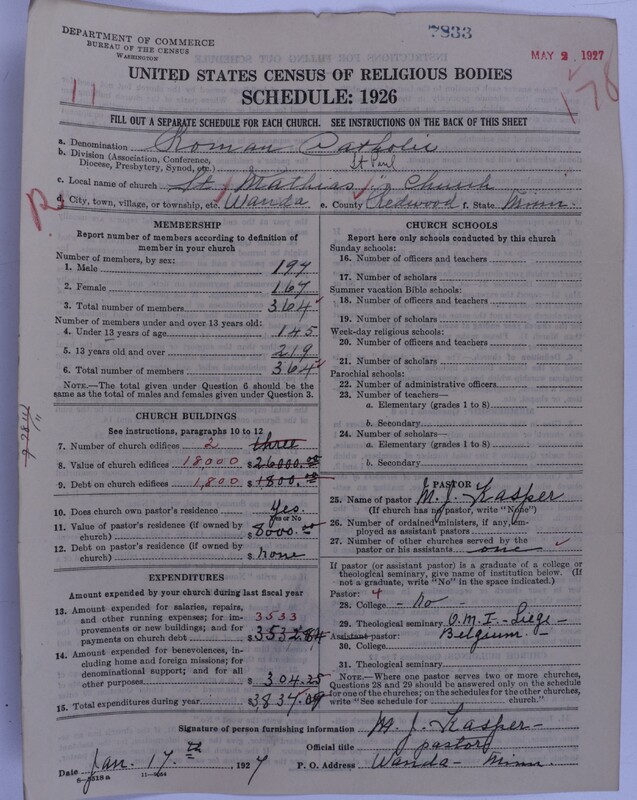 DEPARTMENT OF COMMERCE
BUREAU OF THE CENSUS
WASHINGTON
7833
MAY 2 1927
178
UNITED STATES CENSUS OF RELIGIOUS BODIES
SCHEDULE: 1926
11
FILL OUT A SEPARATE SCHEDULE FOR EACH CHURCH. SEE INSTRUCTIONS ON THE BACK OF THIS SHEET
a. Denomination Roman Catholic
b. Division (Association, Conference, Diocese, Presbytery, Synod, etc.) St Paul
c. Local name of church St. Mathias Church
d. City, town, village, or township, etc. Wanda e. County Redwood f. State Minn.
MEMBERSHIP
Report number of members according to definition of member in your church
Number of members, by sex:
1. Male 197
2. Female 167
3. Total number of members 364
Number of members under and over 13 years old:
4. Under 13 years of age 145
5. 13 years old and over 219
6. Total number of members 364
NOTE.—The total given under Question 6 should be the same as the total of males and females given under Question 3.
CHURCH BUILDINGS
See instructions, paragraphs 10 to 12
7. Number of church edifices 2 three
8. Value of church edifices 18000 $26000.00
9. Debt on church edifices 1,800 $1800.00
10. Does church own pastor's residence? Yes.
Yes or No
11. Value of pastor's residence (if owned by church) $8000.00
12. Debt on pastor's residence (if owned by church) $ none
EXPENDITURES
Amount expended by your church during last fiscal year
13. Amount expended for salaries, repairs, and other running expenses; for improvements or new buildings; and for payments on church debt 3533 $3532.84
14. Amount expended for benevolences, including home and foreign missions; for denominational support; and for all other purposes $304.25
15. Total expenditures during year $3837.09
CHURCH SCHOOLS
Report here only schools conducted by this church
Sunday schools:
16. Number of officers and teachers
17. Number of scholars
Summer vacation Bible schools:
18. Number of officers and teachers
19. Number of scholars
Week-day religious schools:
20. Number of officers and teachers
21. Number of scholars
Parochial schools:
22. Number of administrative officers
23. Number of teachers—
a. Elementary (grades 1 to 8)
b. Secondary
24. Number of scholars—
a. Elementary (grades 1 to 8)
b. Secondary
PASTOR
25. Name of pastor M. J. Kasper
(If church has no pastor, write "None")
26. Number of ordained ministers, if any, employed as assistant pastors
27. Number of other churches served by the pastor or his assistants one
If pastor (or assistant pastor) is a graduate of a college or theological seminary, give name of institution below. (If not a graduate, write "No" in the space indicated.)
Pastor: 4
28. College - No -
29. Theological seminary O.M.I. - Liege - Belgium.
Assistant pastor:
30. College
31. Theological seminary
NOTE.—Where one pastor serves two or more churches, Questions 28 and 29 should be answered only on the schedule for one of the churches; on the schedules for the other churches, write "See schedule for church."
Signature of person furnishing information M. J. Kasper -
Official title pastor
Date Jan. 17th 1927 P. O. Address Wanda - Minn.
8-3518a